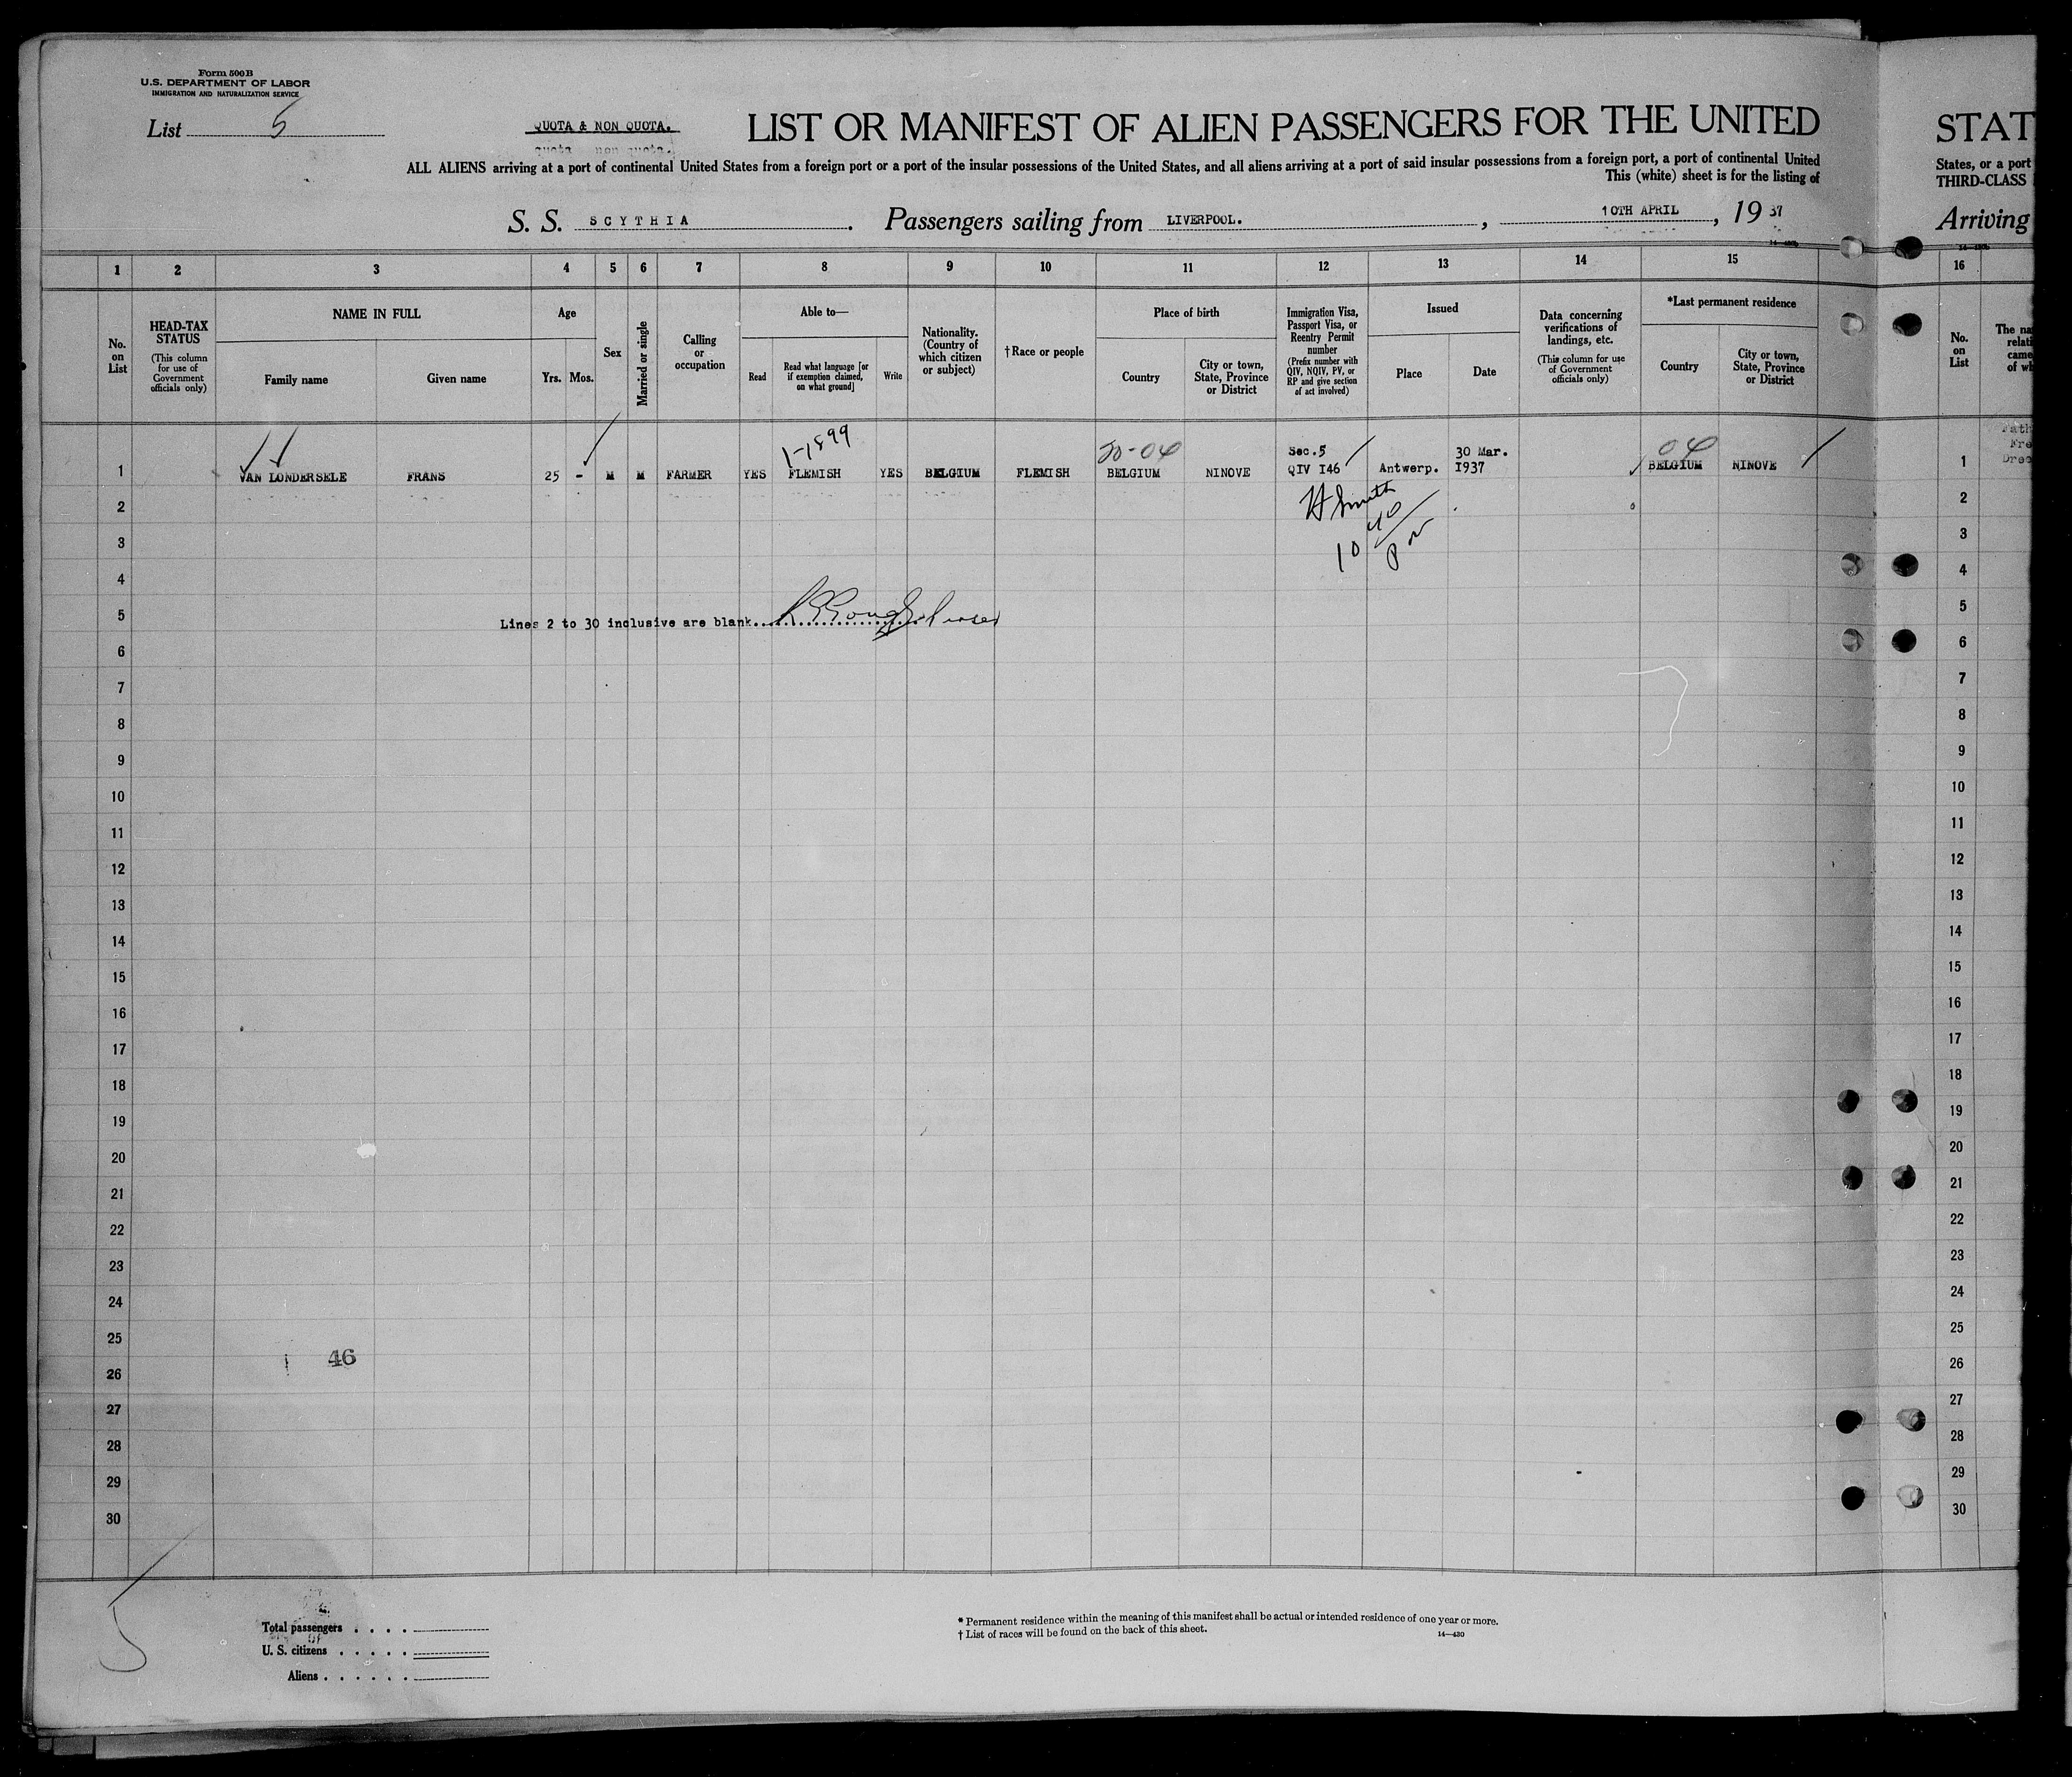 Form 500B
U.S. DEPARTMENT OF LABOR
IMMIGRATION AND NATURALIZATION SERVICE
List 5
QUOTA & NON QUOTA.
quota non quota.
LIST OR MANIFEST OF ALIEN PASSENGERS FOR THE UNITED
STAT
ALL ALIENS arriving at a port of continental United States from a foreign port or a port of the insular possessions of the United States, and all aliens arriving at a port of said insular possessions from a foreign port, a port of continental United
States, or a port
This (white) sheet is for the listing of
THIRD-CLASS
S. S. SCYTHIA. Passengers sailing from LIVERPOOL. , 10TH APRIL , 19 37
Arriving
14—430
1 2 3 4 5 6 7 8 9 10 11 12 13 14 15 16
No. on List
HEAD-TAX STATUS
(This column for use of Government officials only)
NAME IN FULL
Family name
Given name
Age
Yrs.
Mos.
Sex
Married or single
Calling or occupation
Able to—
Read
Read what language [or if exemption claimed, on what ground]
Write
Nationality. (Country of which citizen or subject)
†Race or people
Place of birth
Country
City or town, State, Province or District
Immigration Visa, Passport Visa, or Reentry Permit number
(Prefix number with QIV, NQIV, PV, or RP and give section of act involved)
Issued
Place
Date
Data concerning verifications of landings, etc.
(This column for use of Government officials only)
*Last permanent residence
Country
City or town, State, Province or District
No. on List
The na
relati
came
of wh
1-1899
20-04
Sec.5
30 Mar.
04
1 VAN LONDERSELE FRANS 25 - M M FARMER YES FLEMISH YES BELGIUM FLEMISH BELGIUM NINOVE QIV I46 Antwerp. I937 BELGIUM NINOVE 1
Fath
Fre
Dree
H Smith
10 40
2 2
3 3
4 4
5 5
Lines 2 to 30 inclusive are blank
6 6
7 7
8 8
9 9
10 10
11 11
12 12
13 13
14 14
15 15
16 16
17 17
18 18
19 19
20 20
21 21
22 22
23 23
24 24
25 25
46
26 26
27 27
28 28
29 29
30 30
5
Total passengers
U. S. citizens
Aliens
* Permanent residence within the meaning of this manifest shall be actual or intended residence of one year or more.
† List of races will be found on the back of this sheet.
14—430